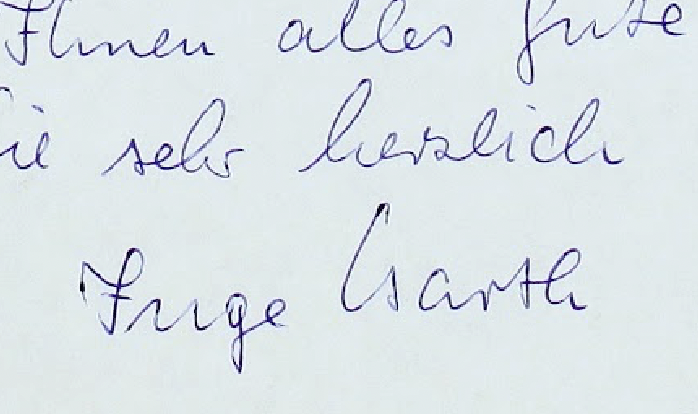 Ihnen alles Gute
ie sehr herzlich
Inge Barth